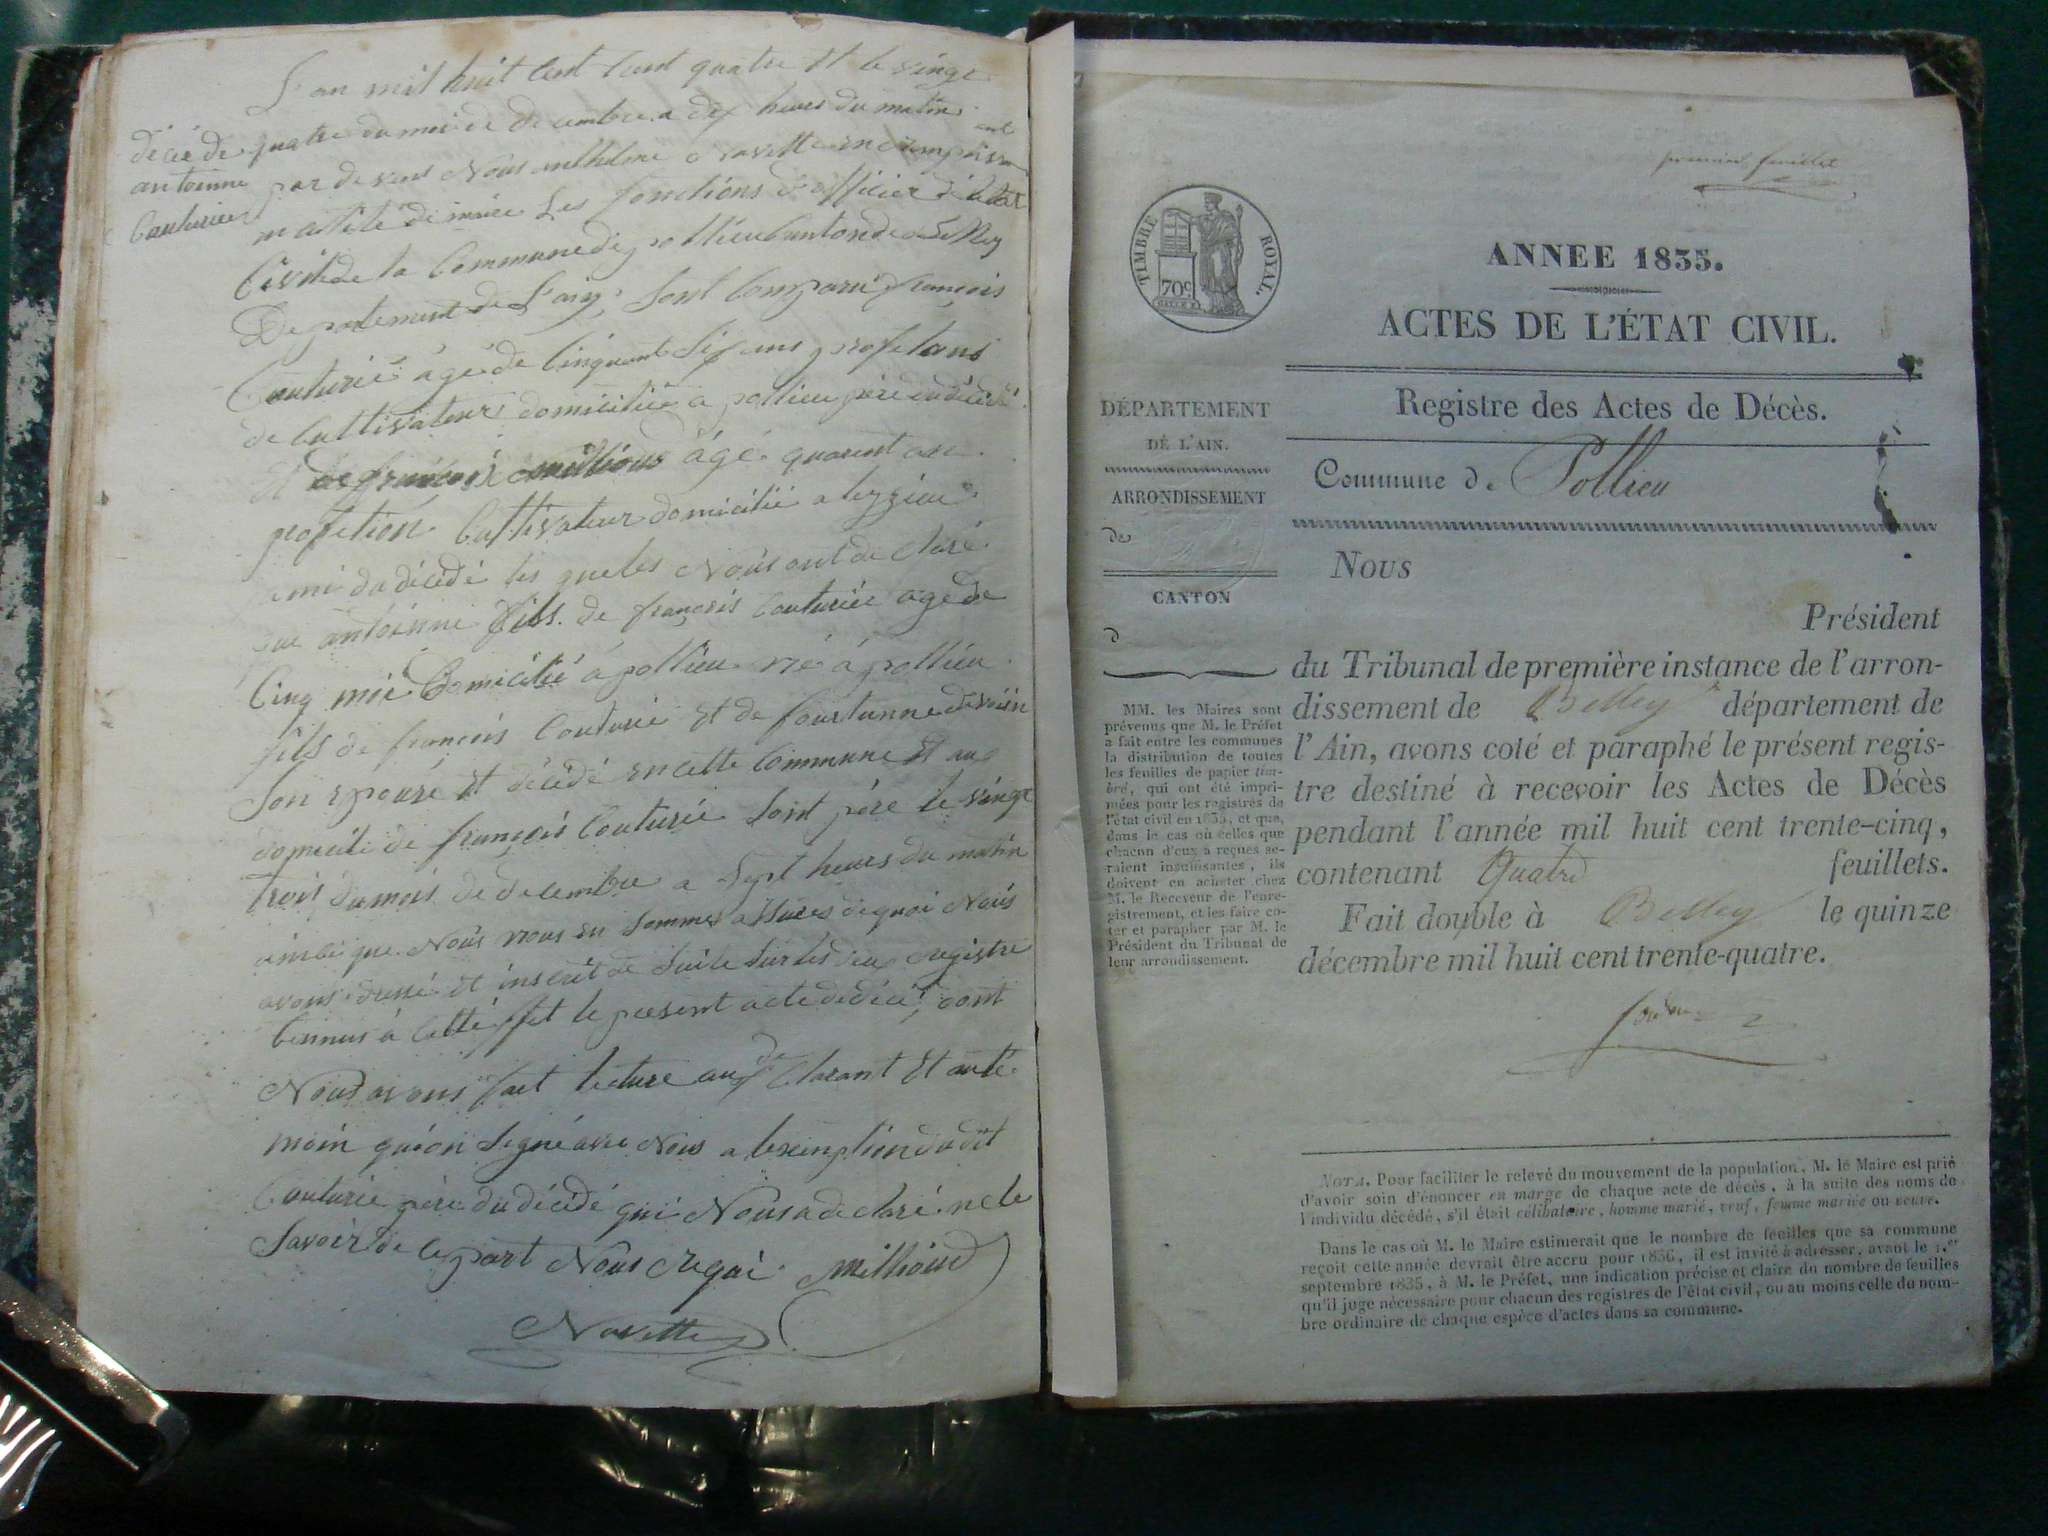 L'an mil huit cent trent quatre et le vingt
quatre du moi de decembre a dix heures du matin
par devent nous
mactité de maire les fonctions d'officier d'état
civil de la commune de pollieu canton de
Departement de l'ain, sont comparu françois
Couturié âgé de cinquant six ans profetions
de cultivateur domicilié a pollieu père du décédé
et de françois millioud âgé quarent an
profetion cultivateur domicilié a
ami du décédé les queles nous ont de claré
que antoinne fils de françois couturié age de
cinq moi domicilié a pollieu né a pollieu
fils de françois couturié et de
son epouse et décédé en cette commune et au
domicile de françois couturié sont père le vingt
trois du mois de decembre a sept heures du matin
ainci que nous nous en sommes assurés de quoi nous
avons dressé et inscrit de suite sur les deux registre
tennus à cette effet le present acte de décé, dont
nous avons fait lecture aux de clarant et au té
moin qui on signé avec nous a l'exemption du dit
couturié père du décédé qui nous a declaré ne le
savoir de ce part nous requi millioud
Navette
décé de
antoinne
Couturier
premier feuillet
TIMBRE ROYAL.
70c
ANNEE 1835.
ACTES DE L'ÉTAT CIVIL.
Registre des Actes de Décès.
Commune de Pollieu
DÉPARTEMENT
DE L'AIN.
ARRONDISSEMENT
de
CANTON
d
MM. les Maires sont
prévenus que M. le Préfet
a fait entre les communes
la distribution de toutes
les feuilles de papier tim-
bré, qui ont été impri-
mées pour les registres de
l'état civil en 1835, et que,
dans le cas où celles que
chacun d'eux a reçues se-
raient insuffisantes, ils
doivent en acheter chez
M. le Receveur de l'enre-
gistrement, et les faire co-
ter et parapher par M. le
Président du Tribunal de
leur arrondissement.
Nous
Président
du Tribunal de première instance de l'arron-
dissement de Belley département de
l'Ain, avons coté et paraphé le présent regis-
tre destiné à recevoir les Actes de Décès
pendant l'année mil huit cent trente-cinq,
contenant Quatre feuillets.
Fait double à Belley le quinze
décembre mil huit cent trente-quatre.
NOTA. Pour faciliter le relevé du mouvement de la population, M. le Maire est prié
d'avoir soin d'énoncer en marge de chaque acte de décès, à la suite des noms de
l'individu décédé, s'il était célibataire, homme marié, veuf, femme mariée ou veuve.
Dans le cas où M. le Maire estimerait que le nombre de feuilles que sa commune
reçoit cette année devrait être accru pour 1836, il est invité à adresser, avant le 1.er
septembre 1835, à M. le Préfet, une indication précise et claire du nombre de feuilles
qu'il juge nécessaire pour chacun des registres de l'état civil, ou au moins celle du nom-
bre ordinaire de chaque espèce d'actes dans sa commune.